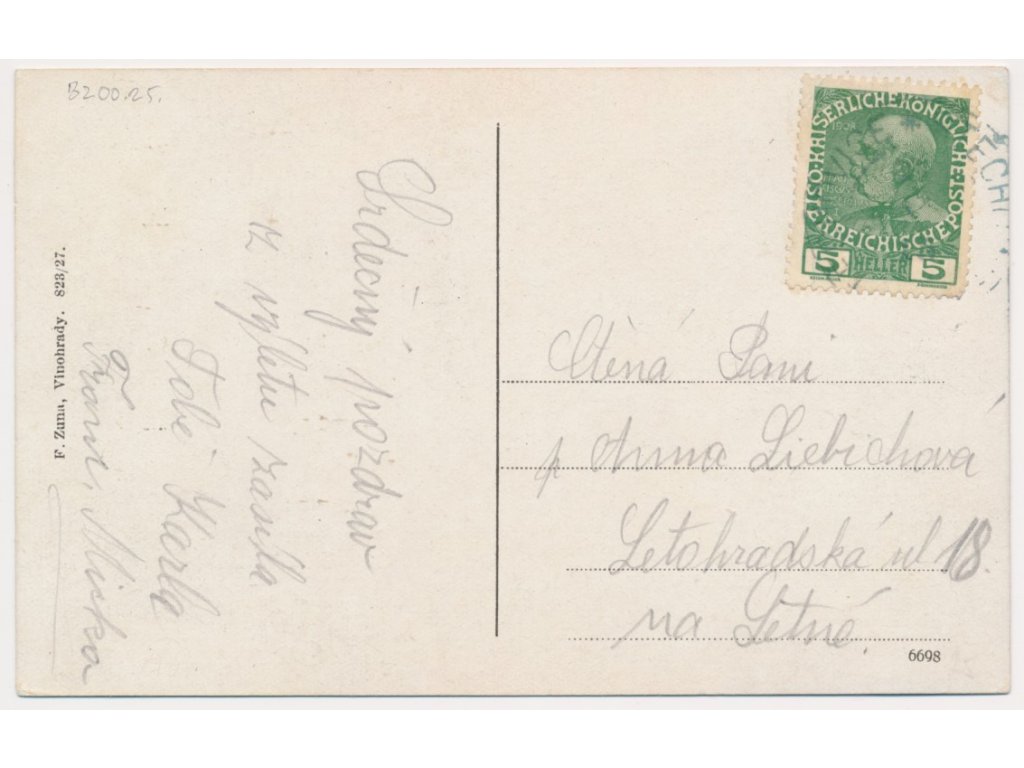 B200.25.
F. Zuna, Vinohrady. 823/27.
Srdečný pozdrav
z výletu zasílá
Tobě Karla
Frant. Micka
K.K. ÖSTERREICHISCHE POST
KAISERLICHE KÖNIGLICHE
ÖSTERREICHISCHE POST
1908
5 HELLER 5
Ctěná Paní
p Anna Liebichová
Letohradská ul 18.
na Letné.
6698